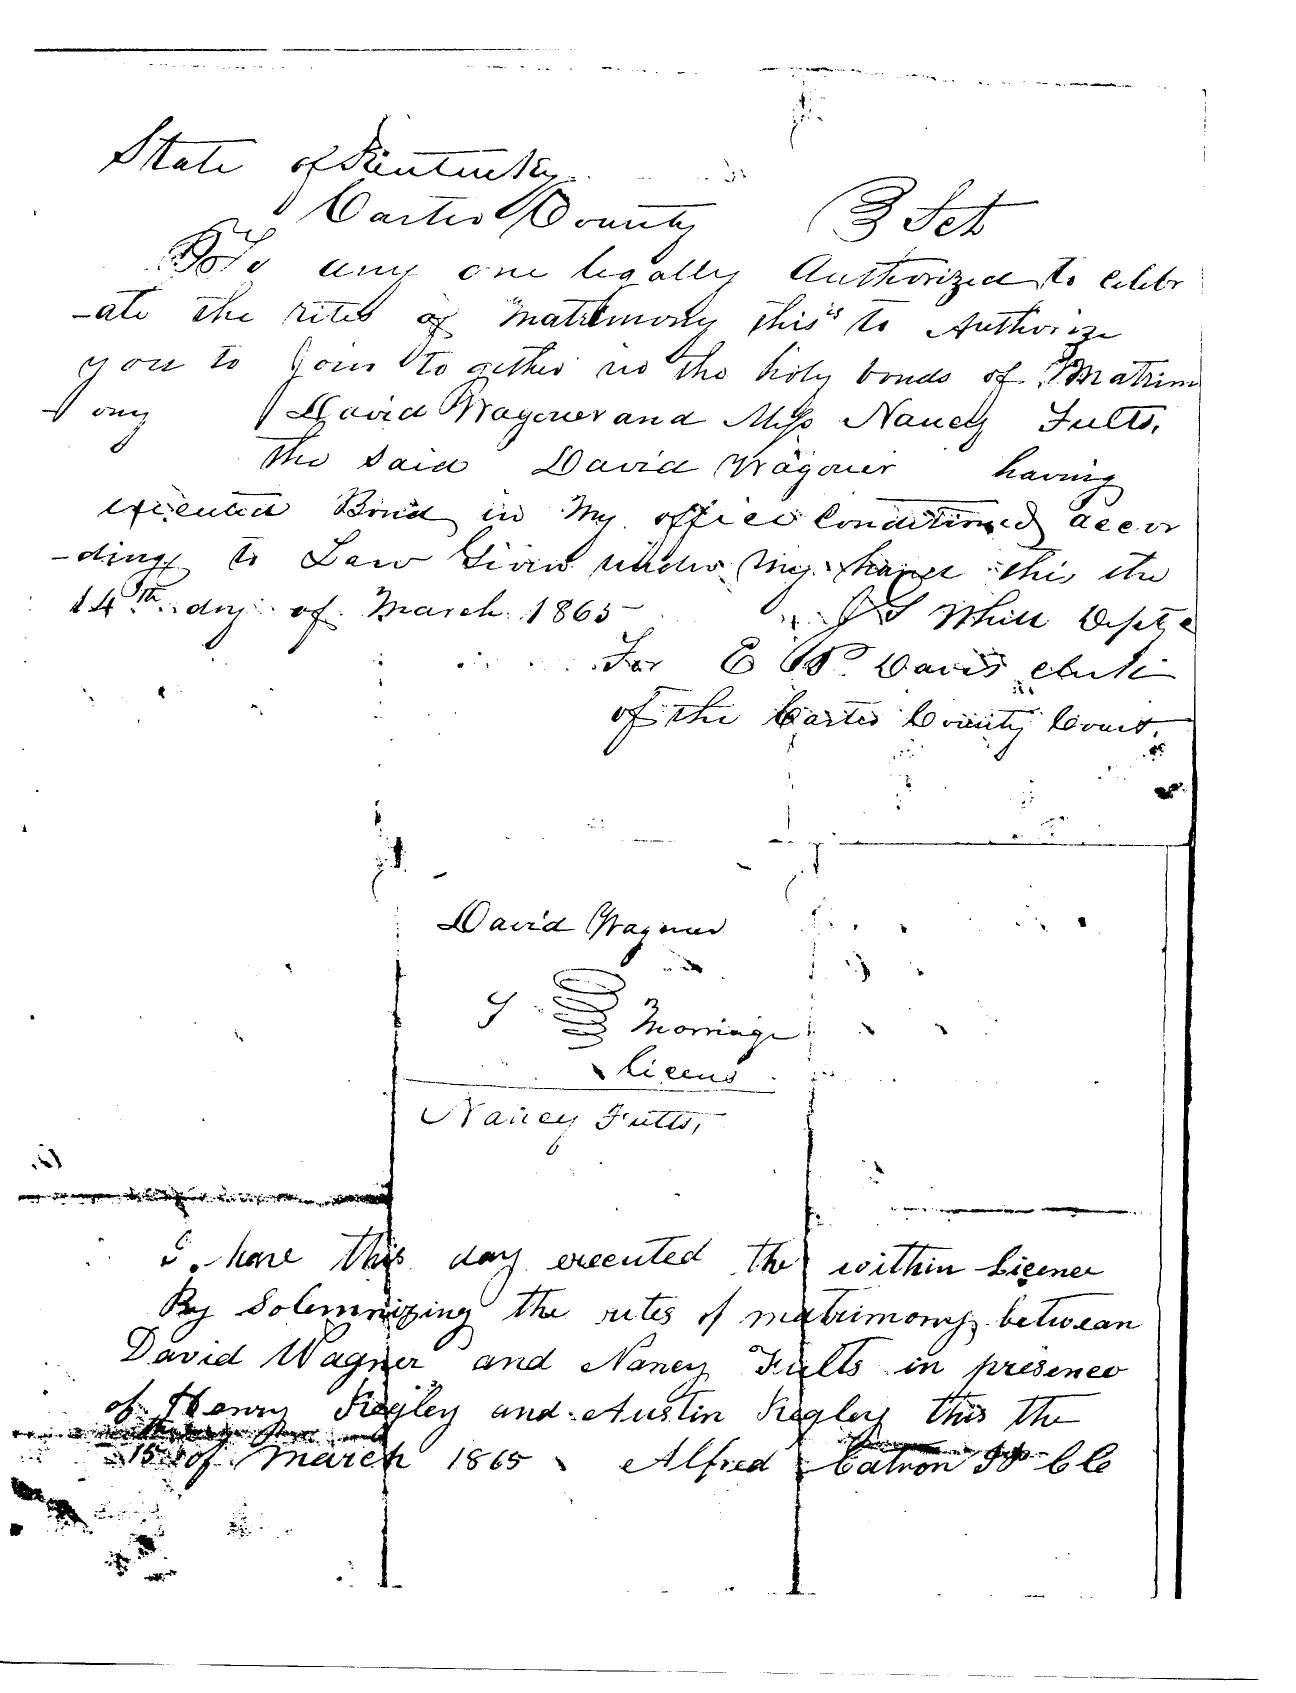 State of Kentucky
Carter County } Sct
To any one legally Authorized to celebr
-ate the rites of Matrimony this is to Authorize
you to Join to gether in the holy bonds of Matrim
ony David Wagoner and Miss Nancy Fults,
the said David Wagoner having
executed Bond in My office Conditioned accor
-ding to Law Given under My hand this the
14th day of March 1865 J S Whitt Dept c
For E P Davis clerk
of the Carter County Court.
David Wagoner
Marriage
Licens
Nancy Fults,
I have this day executed the within Licence
By Solemnizing the rites of matrimony between
David Wagner and Nancy Fults in presence
of Henry Kegley and Austin Kegley this the
15 of March 1865 Alfred Catron JP C C